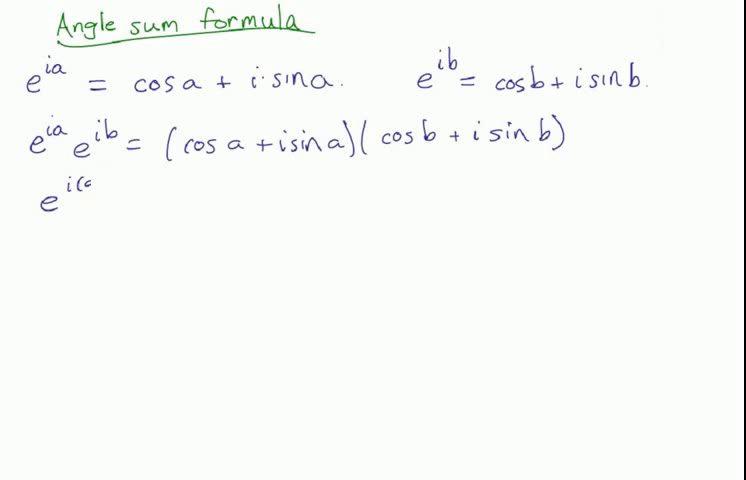 Angle sum formula
e^{ia} = cos a + i·sin a. e^{ib} = cos b + i sin b.
e^{ia} e^{ib} = (cos a + i sin a)(cos b + i sin b)
e^{i(